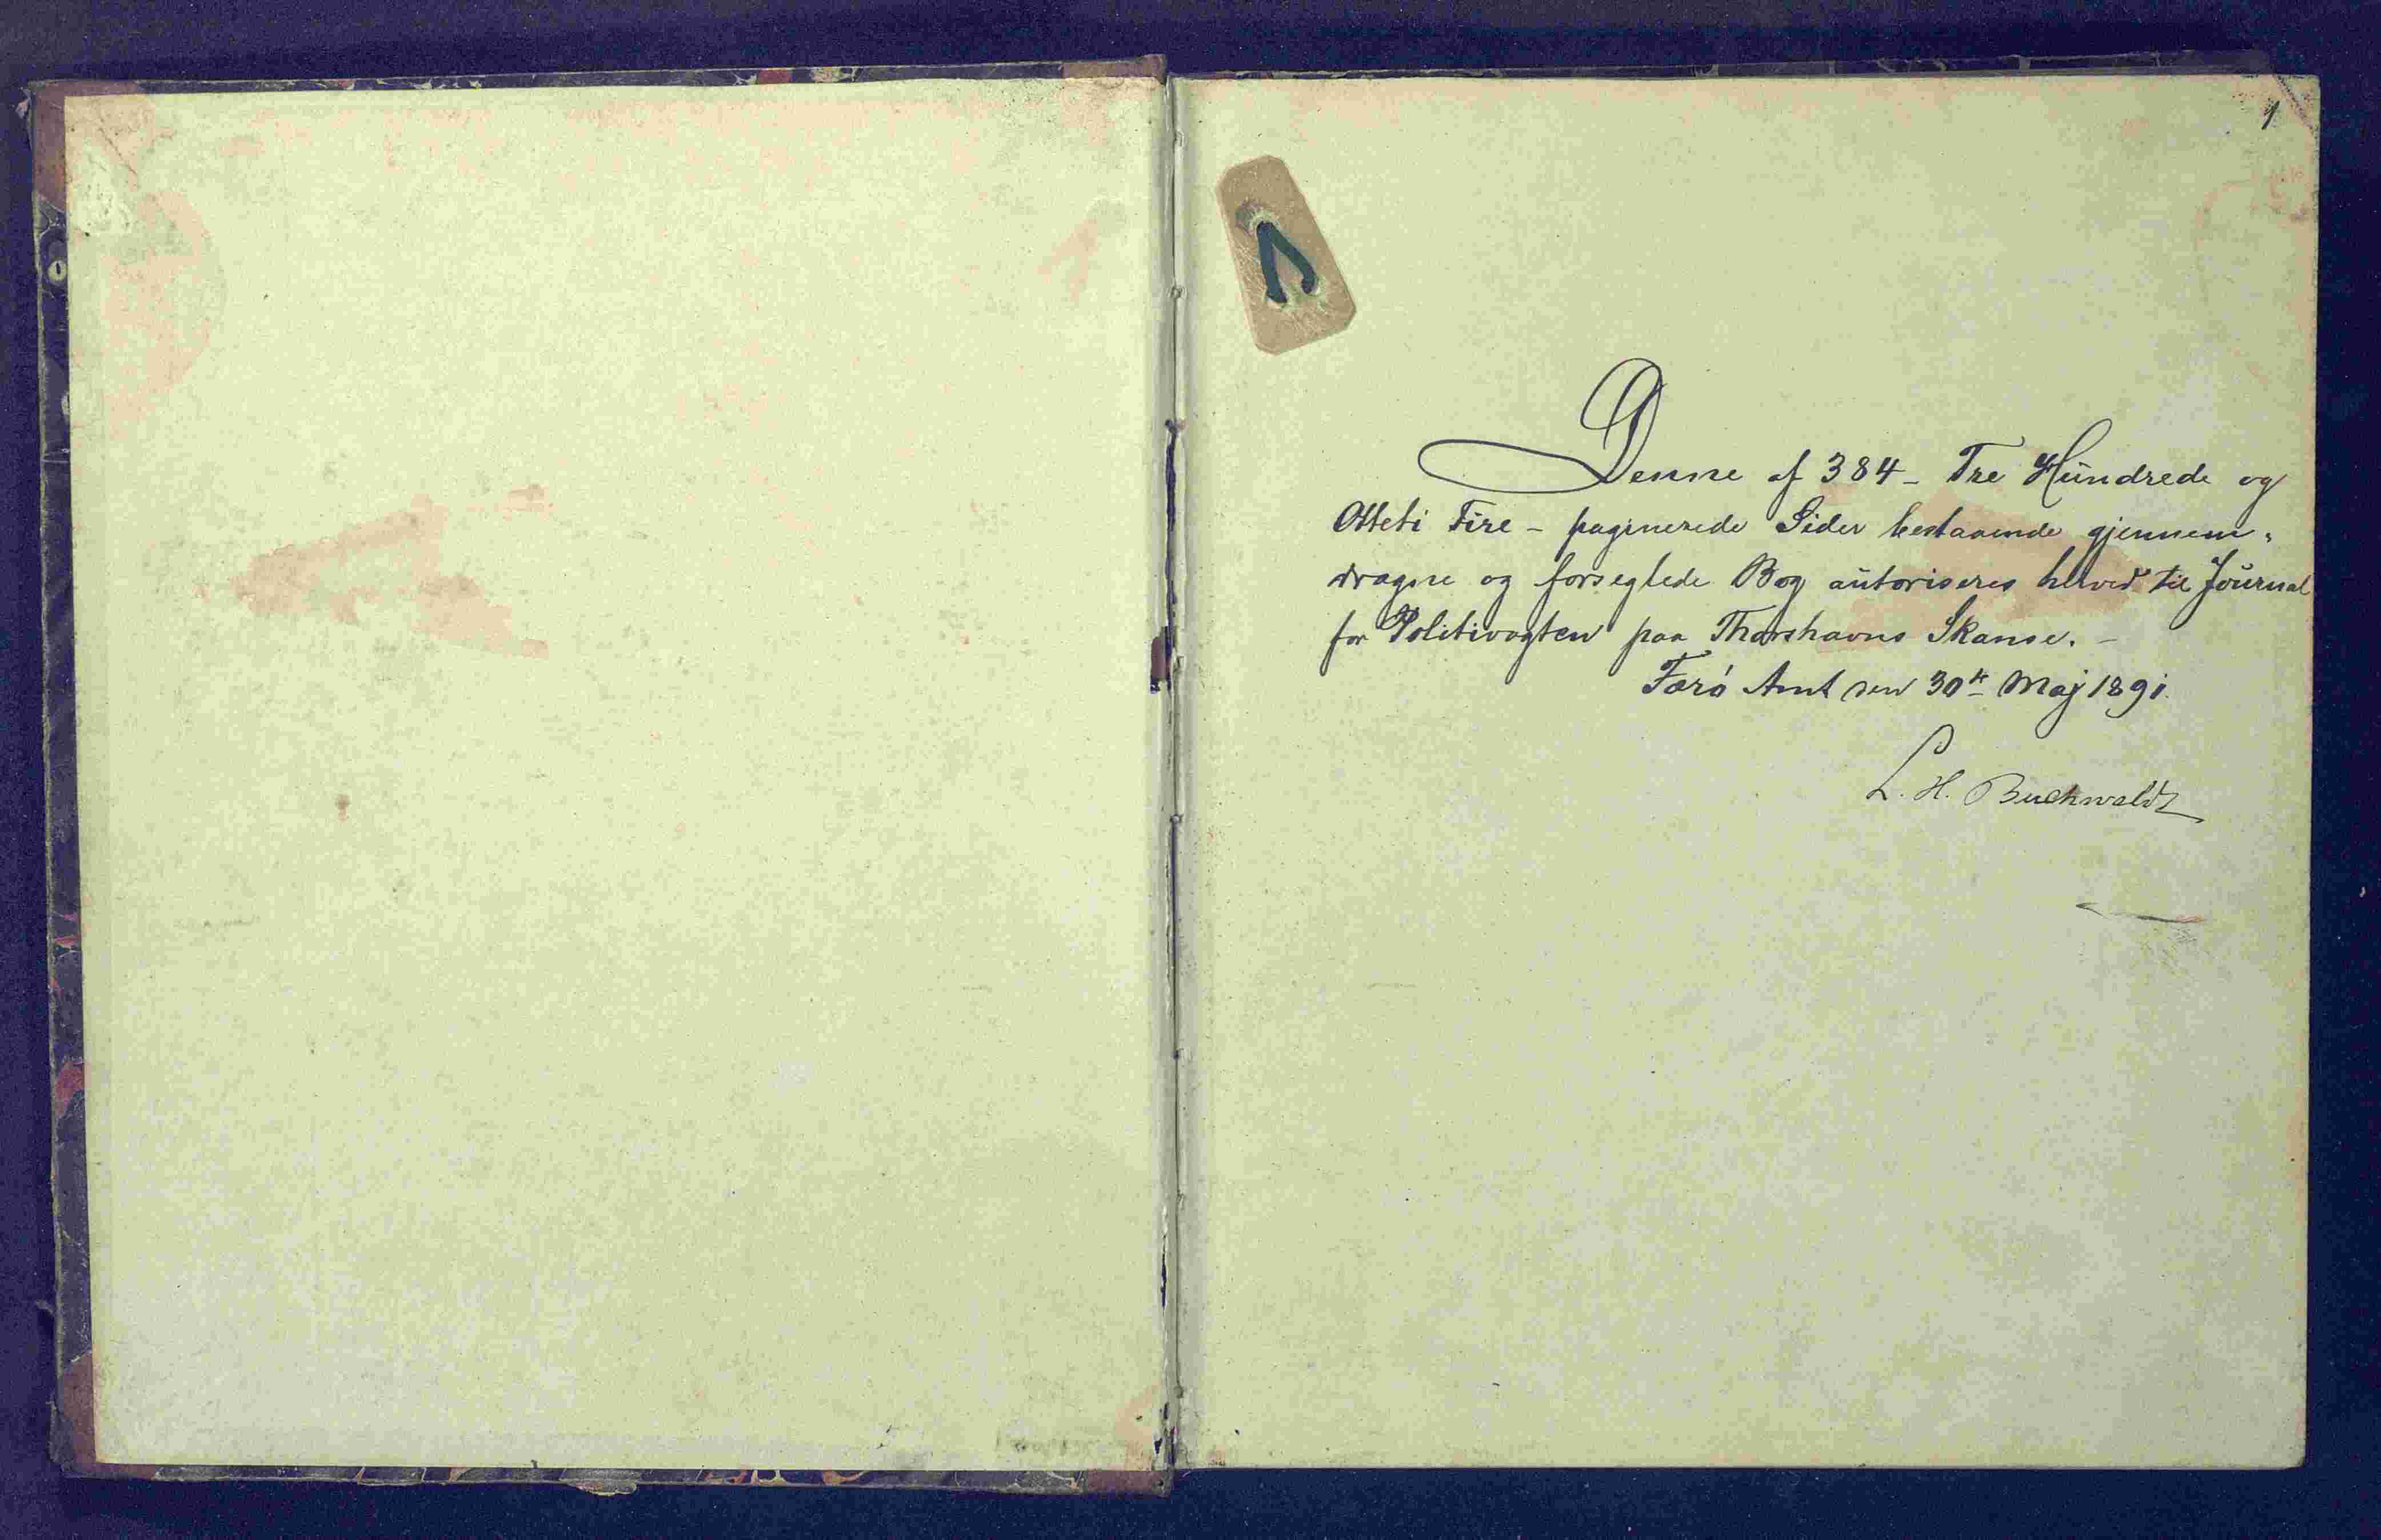 1
Denne af 384 - Tre Hundrede og
Otteti Fire - paginerede Sider bestaaende gjennem-
dragne og forseglede Bog autoriseres herved til Journal
for Politivagten paa Thorshavns Skanse. -
Færø Amt den 30te Maj 1891.
L. H. Buchwaldt